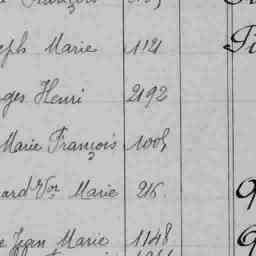 François
eph Marie 1121
ges Henri 2192
Marie François 1005
ard Vor Marie 216.
e Jean Marie 1148